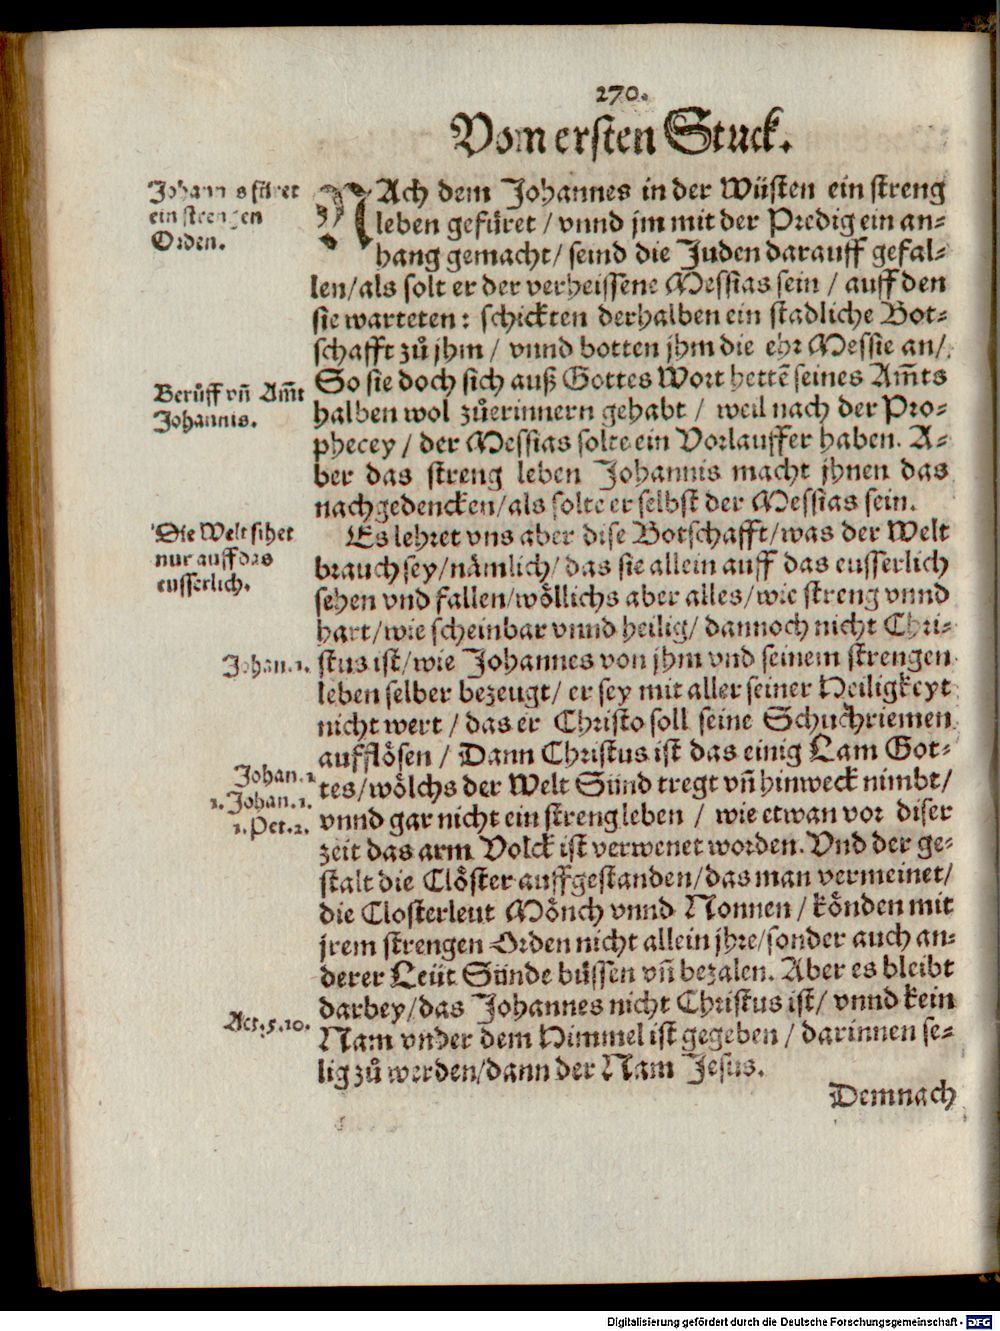 270.
Vom ersten Stuck.
Johannes füret
ein strengen
Orden.
NAch dem Johannes in der Wüsten ein streng
leben gefüret / vnnd jm mit der Predig ein an-
hang gemacht / seind die Juden darauff gefal-
len/als solt er der verheissene Messias sein / auff den
sie warteten: schickten derhalben ein stadliche Bot-
schafft zů jhm / vnnd botten jhm die ehr Messie an/
So sie doch sich auß Gottes Wort hettē seines Am̄ts
Berůff vn̄ Am̄t
Johannis.
halben wol zůerinnern gehabt / weil nach der Pro-
phecey / der Messias solte ein Vorlauffer haben. A-
ber das streng leben Johannis macht jhnen das
nachgedencken/als solte er selbst der Messias sein.
Die Welt sihet
nur auff das
eusserlich.
Es lehret vns aber dise Botschafft/was der Welt
brauch sey/nämlich/das sie allein auff das eusserlich
sehen vnd fallen/wöllichs aber alles/wie streng vnnd
hart/wie scheinbar vnnd heilig/dannoch nicht Chri-
Johan.1.
stus ist/wie Johannes von jhm vnd seinem strengen
leben selber bezeugt/er sey mit aller seiner Heiligkeyt
nicht wert / das er Christo soll seine Schuchriemen
aufflösen / Dann Christus ist das einig Lam Got-
Johan.1
1.Johan.1.
1.Pet.2.
tes/wölchs der Welt Sünd tregt vn̄ hinweck nimbt/
vnnd gar nicht ein streng leben / wie etwan vor diser
zeit das arm Volck ist verwenet worden. Vnd der ge-
stalt die Clöster auffgestanden/das man vermeinet/
die Closterleut Mönch vnnd Nonnen / könden mit
jrem strengen Orden nicht allein jhre/sonder auch an-
derer Leüt Sünde büssen vn̄ bezalen. Aber es bleibt
darbey/das Johannes nicht Christus ist/ vnnd kein
Act.5.10.
Nam vnder dem Himmel ist gegeben / darinnen se-
lig zů werden/dann der Nam Jesus.
Demnach
Digitalisierung gefördert durch die Deutsche Forschungsgemeinschaft - DFG